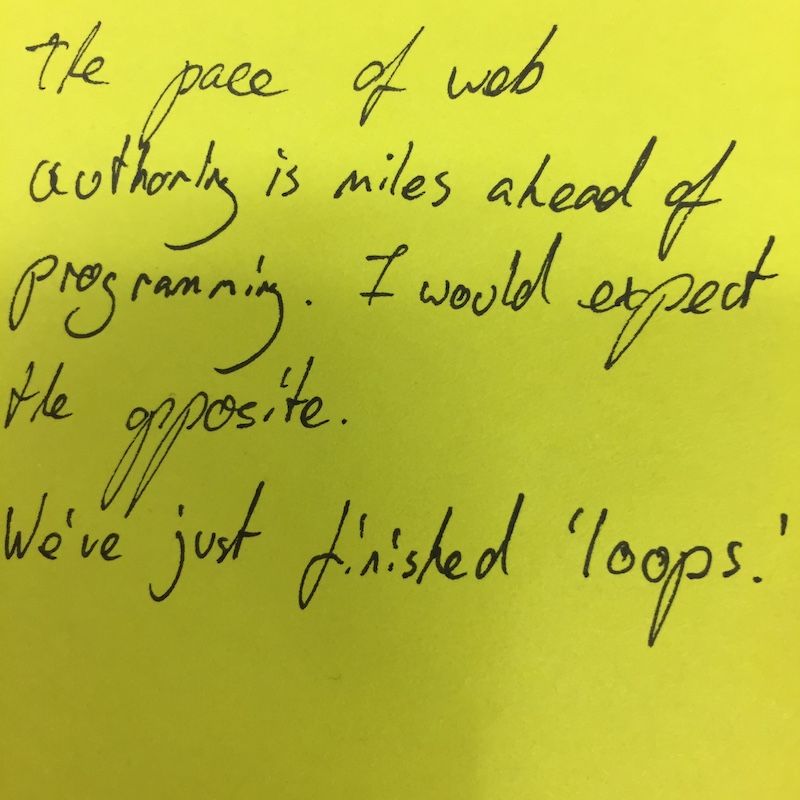 The pace of web
authoring is miles ahead of
programming. I would expect
the opposite.
We've just finished 'loops.'